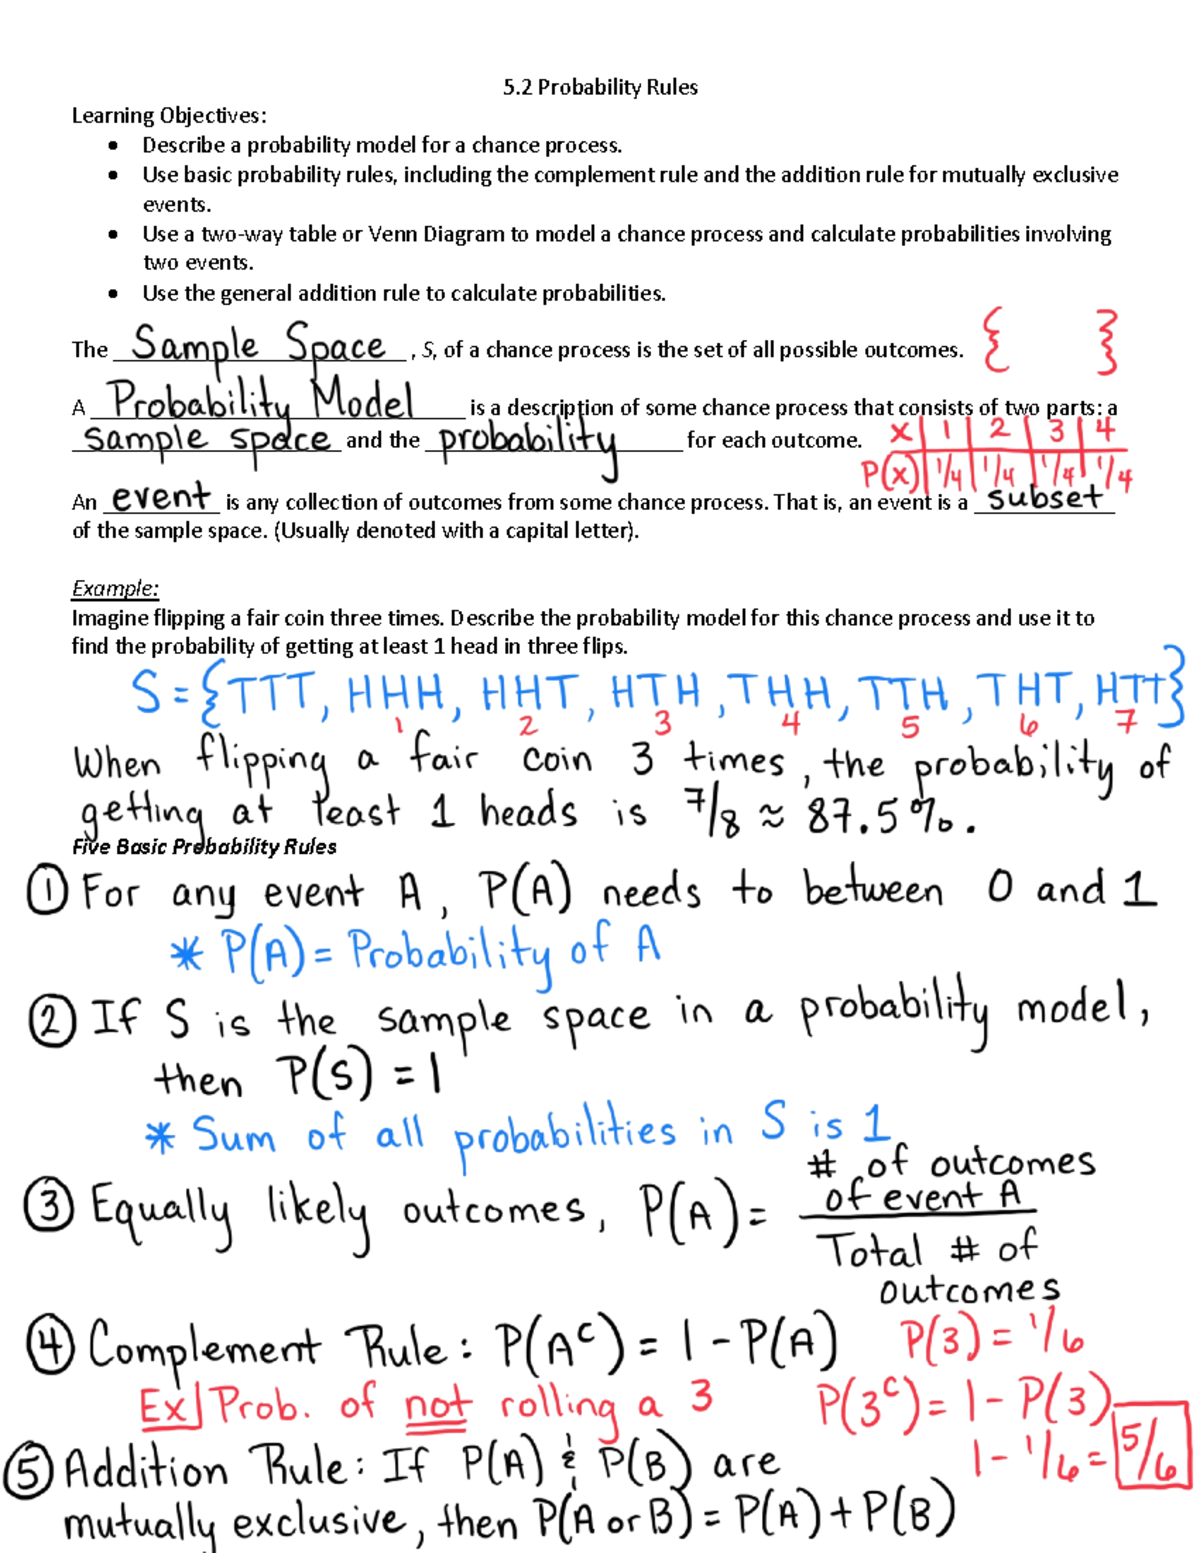 5.2 Probability Rules
Learning Objectives:
• Describe a probability model for a chance process.
• Use basic probability rules, including the complement rule and the addition rule for mutually exclusive
events.
• Use a two-way table or Venn Diagram to model a chance process and calculate probabilities involving
two events.
• Use the general addition rule to calculate probabilities.
The Sample Space, S, of a chance process is the set of all possible outcomes. { }
A Probability Model is a description of some chance process that consists of two parts: a
sample space and the probability for each outcome.
X | 1 | 2 | 3 | 4
P(x) | 1/4 | 1/4 | 1/4 | 1/4
An event is any collection of outcomes from some chance process. That is, an event is a subset
of the sample space. (Usually denoted with a capital letter).
Example:
Imagine flipping a fair coin three times. Describe the probability model for this chance process and use it to
find the probability of getting at least 1 head in three flips.
S = {TTT, HHH, HHT, HTH, THH, TTH, THT, HTT}
1 2 3 4 5 6 7
When flipping a fair coin 3 times, the probability of
getting at least 1 heads is 7/8 ≈ 87.5%.
Five Basic Probability Rules
① For any event A, P(A) needs to between 0 and 1
* P(A) = Probability of A
② If S is the sample space in a probability model,
then P(S) = 1
* Sum of all probabilities in S is 1
③ Equally likely outcomes, P(A) = # of outcomes
of event A
Total # of
outcomes
④ Complement Rule: P(Aᶜ) = 1 - P(A) P(3) = 1/6
Ex| Prob. of not rolling a 3 P(3ᶜ) = 1 - P(3)
1 - 1/6 = 5/6
⑤ Addition Rule: If P(A) & P(B) are
mutually exclusive, then P(A or B) = P(A) + P(B)